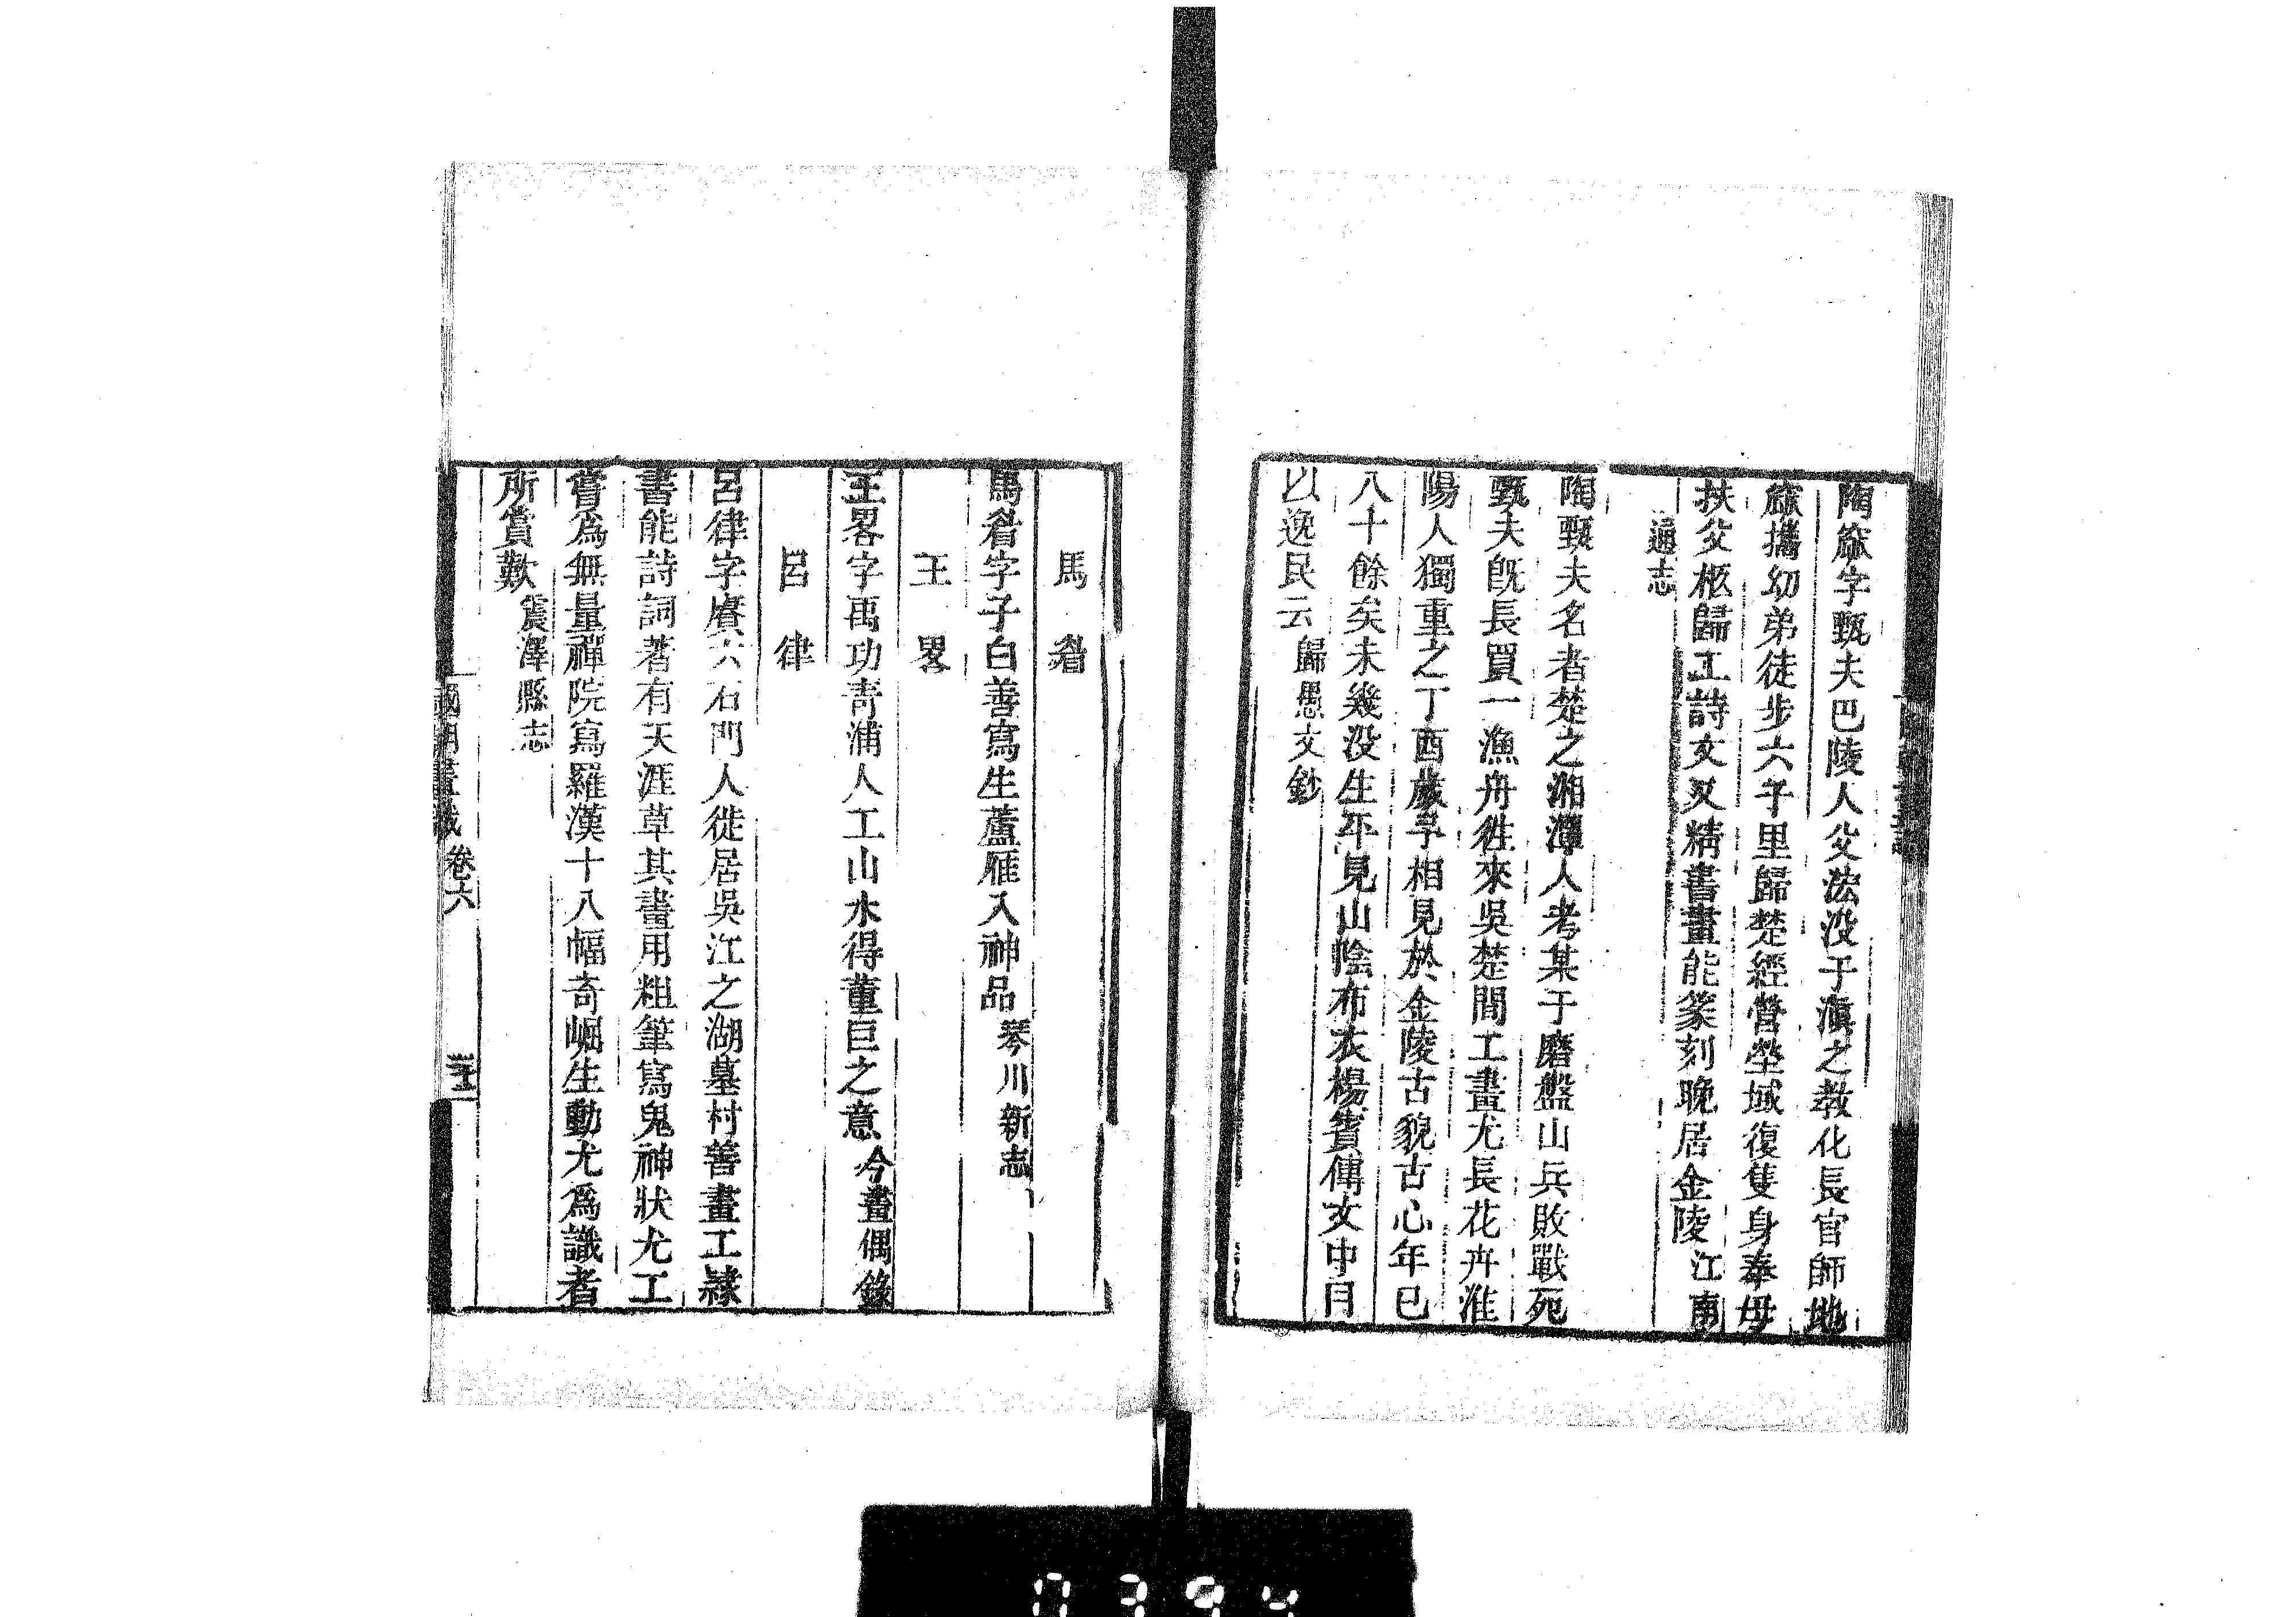 陶窳字甄夫巴陵人父浤没于滇之教化長官師地
窳攜幼弟徒步六千里歸楚經營塋域復隻身奉母
扶父柩歸工詩文又精書畫能篆刻晚居金陵江南
通志
陶甄夫名者楚之湘潭人考某于磨盤山兵敗戰死
甄夫旣長買一漁舟徃來吳楚間工畫尤長花卉淮
陽人獨重之丁酉歲予相見於金陵古貌古心年已
八十餘矣未幾没生平見山陰布衣楊賓傳文中目
以逸民云歸愚文鈔
馬㫺
馬㫺字子白善寫生蘆雁入神品琴川新志
王畧
王畧字禹功青浦人工山水得董巨之意今畫偶錄
呂律
呂律字賡六石門人徙居吳江之湖墓村善畫工隷
書能詩詞著有天涯草其畫用粗筆寫鬼神狀尤工
嘗爲無量禪院寫羅漢十八幅奇崛生動尤爲識者
所賞歎震澤縣志
國朝畫識卷六
0394